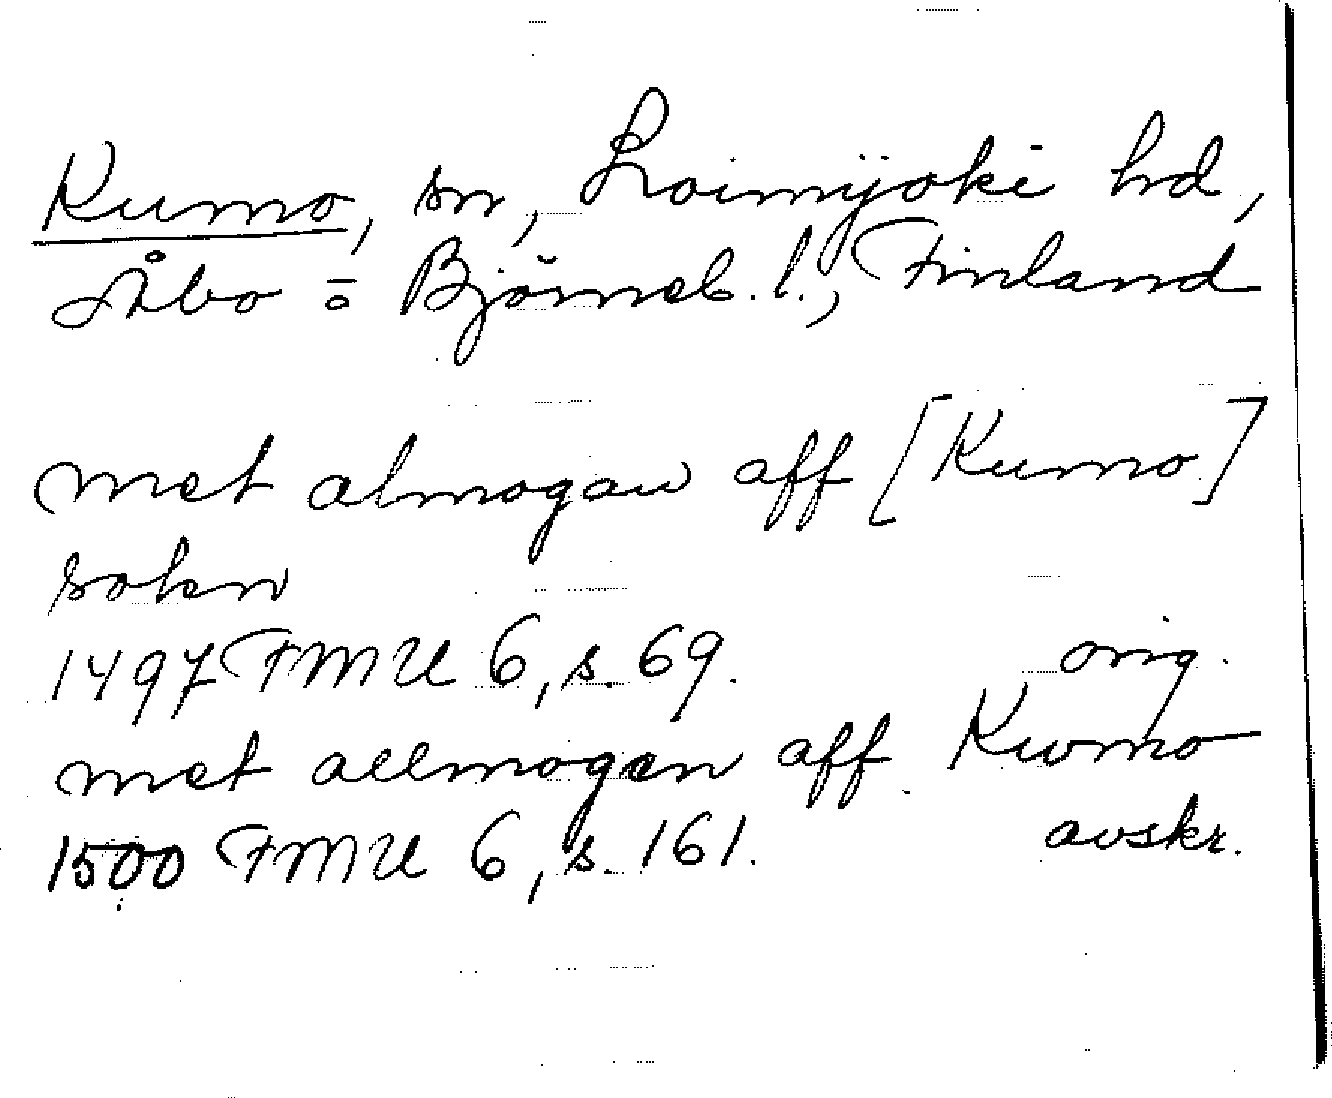 Kumo, sn, Loimijoki hd,
Åbo o. Björneb. l., Finland
met almogan aff [Kumo]
sokn
1497 FMU 6, s. 69. orig.
met allmogen aff Kwmo
1500 FMU 6, s. 161. avskr.